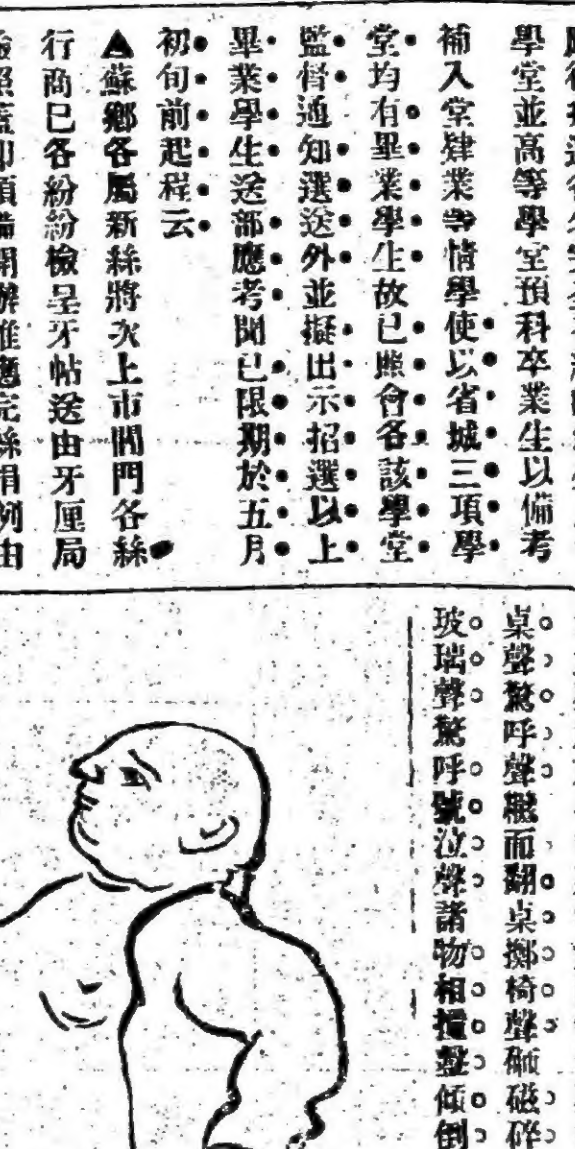 學堂並高等學堂預科卒業生以備考
補入堂肄業等情學使以省城三項學
堂均有畢業學生故已照會各該學堂
監督通知選送外並擬出示招選以上
畢業學生送部應考聞已限期於五月
初旬前起程云
▲蘇鄉各屬新絲將次上市閶門各絲
行商已各紛紛檢呈牙帖送由牙厘局
桌聲驚呼聲繼而翻桌擲椅聲砸磁碎
玻璃聲驚呼號泣聲諸物相撞盤傾倒